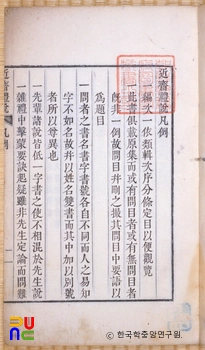 近齋禮說凡例
一編次一依類輯次序分條定目以便觀覽
一此書俱載原集而或有問目者或有無問目者
旣非一例故問目幷刪之撮其問目中要語以
爲題目
一問者之書名書字書號各自不同而人之易知
字不如名故幷以姓名雙書而其中加以別號
者所以尊異也
一先輩諸說皆低一字書之使不相混於先生說
一雜禮中擊蒙要訣起疑雖非先生定論而問難
近齋禮說 凡例 一
한국학중앙연구원